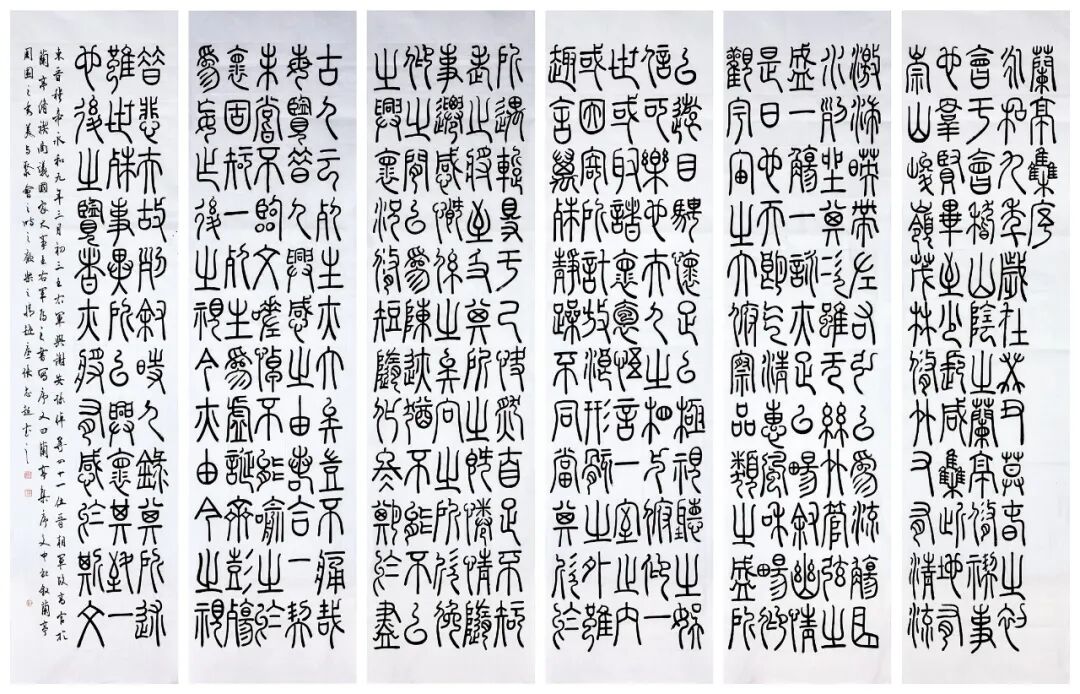 蘭亭集序
永和九年歲在癸丑暮春之初
會于會稽山陰之蘭亭脩禊事
也羣賢畢至少長咸集此地有
崇山峻嶺茂林脩竹又有清流
激湍暎帶左右引以為流觴曲
水列坐其次雖無絲竹管弦之
盛一觴一詠亦足以暢敘幽情
是日也天朗氣清惠風和暢仰
觀宇宙之大俯察品類之盛所
以遊目騁懷足以極視聽之娛
信可樂也夫人之相與俯仰一
世或取諸懷抱悟言一室之內
或因寄所託放浪形骸之外雖
趣舍萬殊靜躁不同當其欣於
所遇暫得于己快然自足不知
老之將至及其所之既惓情隨
事遷感慨係之矣向之所欣俛
仰之間以為陳跡猶不能不以
之興懷況脩短隨化終期於盡
古人云死生亦大矣豈不痛哉
每覽昔人興感之由若合一契
未嘗不臨文嗟悼不能喻之於
懷固知一死生為虛誕齊彭殤
為妄作後之視今亦由今之視
昔悲夫故列敘時人錄其所述
雖世殊事異所以興懷其致一
也後之覽者亦將有感於斯文
東晉穆帝永和九年三月初三王右軍與謝安孫綽等四十一位晉朝軍政高官於
蘭亭脩禊商議國家大事王右軍為之書寫序文曰蘭亭集序文中敘蘭亭
周圍之秀美與聚會之時之歡樂之情 張志 書之